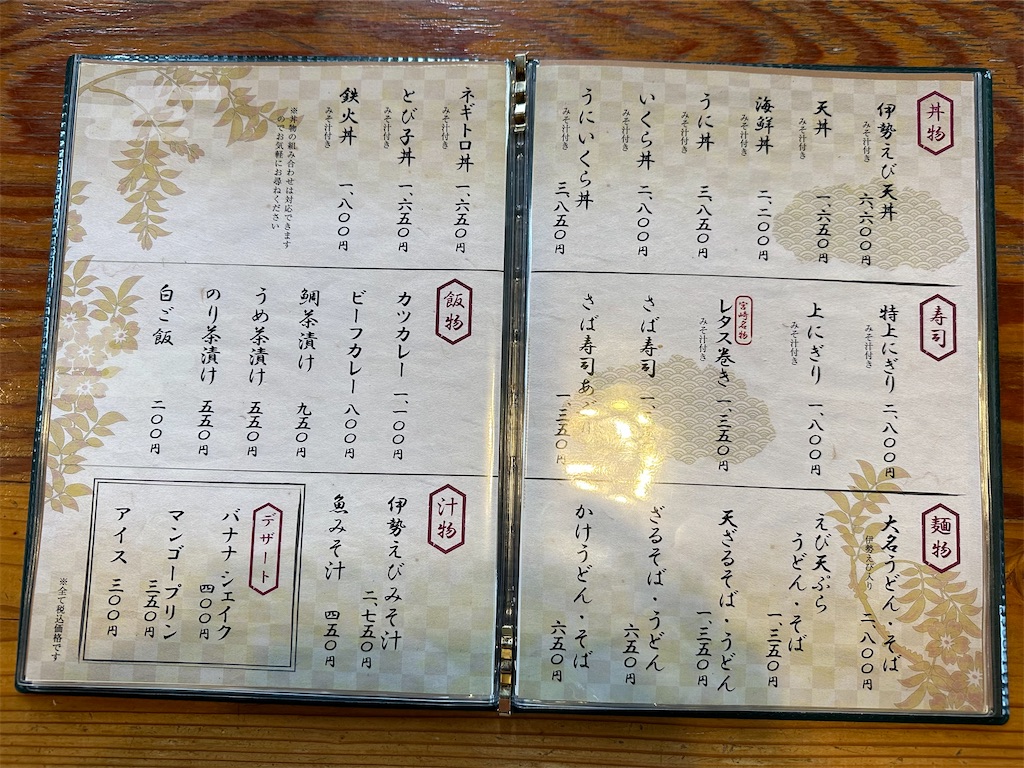 丼物
伊勢えび天丼 六、六〇〇円
みそ汁付き
天丼 一、六五〇円
みそ汁付き
海鮮丼 二、二〇〇円
みそ汁付き
うに丼 三、八五〇円
みそ汁付き
いくら丼 二、八〇〇円
みそ汁付き
うにいくら丼 三、八五〇円
みそ汁付き
ネギトロ丼 一、六五〇円
みそ汁付き
とび子丼 一、六五〇円
みそ汁付き
鉄火丼 一、八〇〇円
みそ汁付き
※丼物の組み合わせは対応できます
のでお気軽にお尋ねください
寿司
特上にぎり 二、八〇〇円
みそ汁付き
上にぎり 一、八〇〇円
みそ汁付き
宮崎名物
レタス巻き 一、三五〇円
みそ汁付き
さば寿司 一、
さば寿司あ 一、三五〇円
飯物
カツカレー 一、一〇〇円
ビーフカレー 八〇〇円
鯛茶漬け 九五〇円
うめ茶漬け 五五〇円
のり茶漬け 五五〇円
白ご飯 二〇〇円
麺物
大名うどん・そば 二、八〇〇円
伊勢えび入り
えび天ぷら
うどん・そば 一、三五〇円
天ざるそば・うどん 一、三五〇円
ざるそば・うどん 六五〇円
かけうどん・そば 六五〇円
汁物
伊勢えびみそ汁 二、七五〇円
魚みそ汁 四五〇円
デザート
バナナシェイク 四〇〇円
マンゴープリン 三五〇円
アイス 三〇〇円
※全て税込価格です